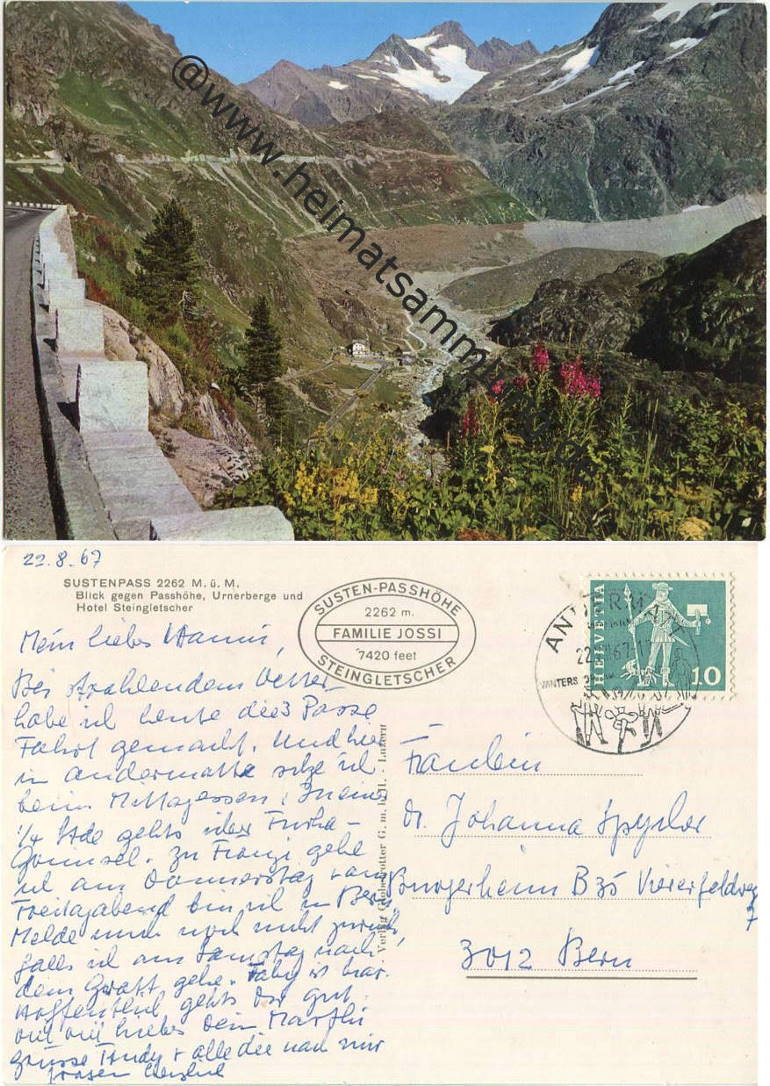 @www.heimatsamml
22.8.67
SUSTENPASS 2262 M. ü. M.
Blick gegen Passhöhe, Urnerberge und
Hotel Steingletscher
SUSTEN-PASSHÖHE
2262 m.
FAMILIE JOSSI
7420 feet
STEINGLETSCHER
HELVETIA
10
Mein liebes Hanni,
Bei strahlendem Wetter
habe ich heute die 3 Pässe
Fahrt gemacht. Und hier
in Andermatt sitze ich
beim Mittagessen, in einer
1/4 Stde gehts über Furka-
Grimsel. Zu Franzi gehe
ich am Donnerstag + am
Freitagabend bin ich in Bern
Melde mich noch nicht zurück,
falls ich am Samstag nach
dem Gwatt gehe.
Hoffentlich gehts Dir gut.
viel viel liebes Dein Marthi
Grüsse Trudy + alle die nach mir
fragen herzlich
Verlag Globetrotter G. m. b. H. - Luzern
Fräulein
dr. Johanna Spycher
Burgerheim B35 Viererfeldweg
7
3012 Bern